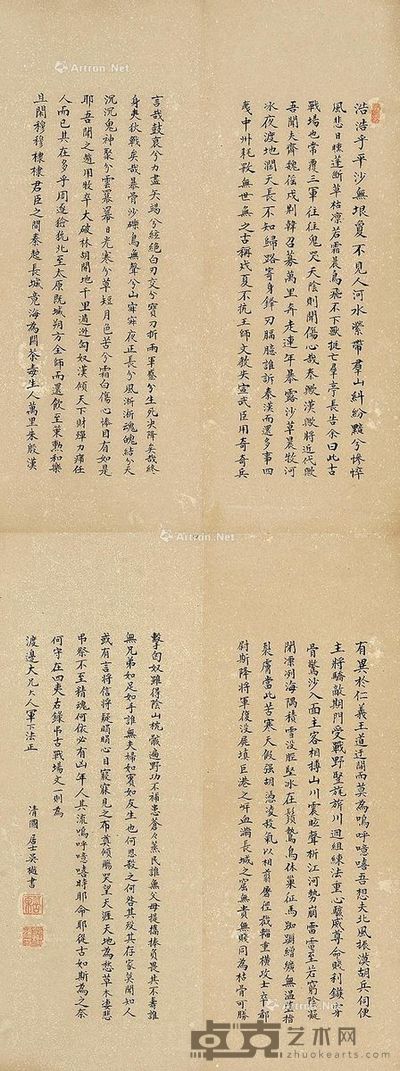 浩浩乎平沙無垠夐不見人河水縈帶羣山糾紛黯兮慘悴
風悲日曛蓬斷草枯凜若霜晨鳥飛不下獸挺亡羣亭長告余曰此古
戰場也常覆三軍往往鬼哭天陰則聞傷心哉秦歟漢歟將近代歟
吾聞夫齊魏徭戍荊韓召募萬里奔走連年暴露沙草晨牧河
冰夜渡地闊天長不知歸路寄身鋒刃腷臆誰訴秦漢而還多事四
夷中州耗斁無世無之古稱戎夏不抗王師文教失宣武臣用奇奇兵
有異於仁義王道迂闊而莫為嗚呼噫嘻吾想夫北風振漠胡兵伺便
主將驕敵期門受戰野豎旄旗川迴組練法重心駭威尊命賤利鏃穿
骨驚沙入面主客相搏山川震眩聲析江河勢崩雷電至若窮陰凝
閉凜冽海隅積雪沒脛堅冰在鬚鷙鳥休巢征馬踟躕繒纊無溫墮指
裂膚當此苦寒天假強胡憑凌殺氣以相剪屠徑截輜重橫攻士卒都
尉斯降將軍復沒屍填巨港之岸血滿長城之窟無貴無賤同為枯骨可勝
言哉鼓衰兮力盡矢竭兮絃絕白刃交兮寶刀折兩軍蹙兮生死決降矣哉終
身夷狄戰矣哉暴骨沙礫鳥無聲兮山寂寂夜正長兮風淅淅魂魄結兮天
沉沉鬼神聚兮雲冪冪日光寒兮草短月色苦兮霜白傷心慘目有如是
耶吾聞之趙用牧卒大破林胡開地千里遁逃匈奴漢傾天下財殫力痡任
人而已其在多乎周逐獫狁北至太原既城朔方全師而還飲至策勳和樂
且閑穆穆棣棣君臣之間秦起長城竟海為關荼毒生人萬里朱殷漢
擊匈奴雖得陰山枕骸遍野功不補患蒼蒼蒸民誰無父母提攜捧負畏其不壽誰
無兄弟如足如手誰無夫婦如賓如友生也何恩殺之何咎其歿其存家莫聞知人
或有言將信將疑悁悁心目寢寐見之布奠傾觴哭望天涯天地為愁草木凄悲
弔祭不至精魂何依必有凶年人其流離嗚呼噫嘻時耶命耶從古如斯為之奈
何守在四夷右錄弔古戰場文一則為
渡邊大兄大人軍下法正
清國居士吳樾書
Artron.Net
Artron.Net
Artron.Net
Artron.Net
艺术网
zhuokearts.com